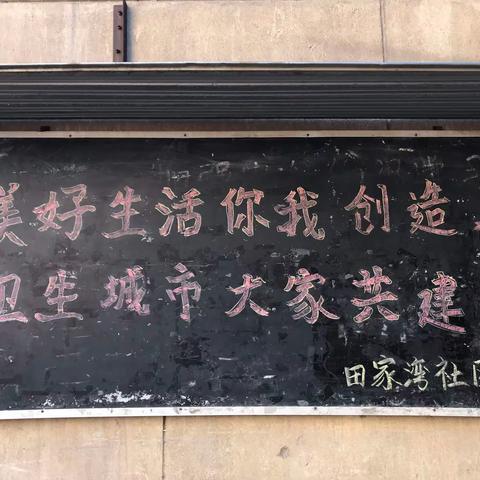 美好生活你我创造
卫生城市大家共建
田家湾社区